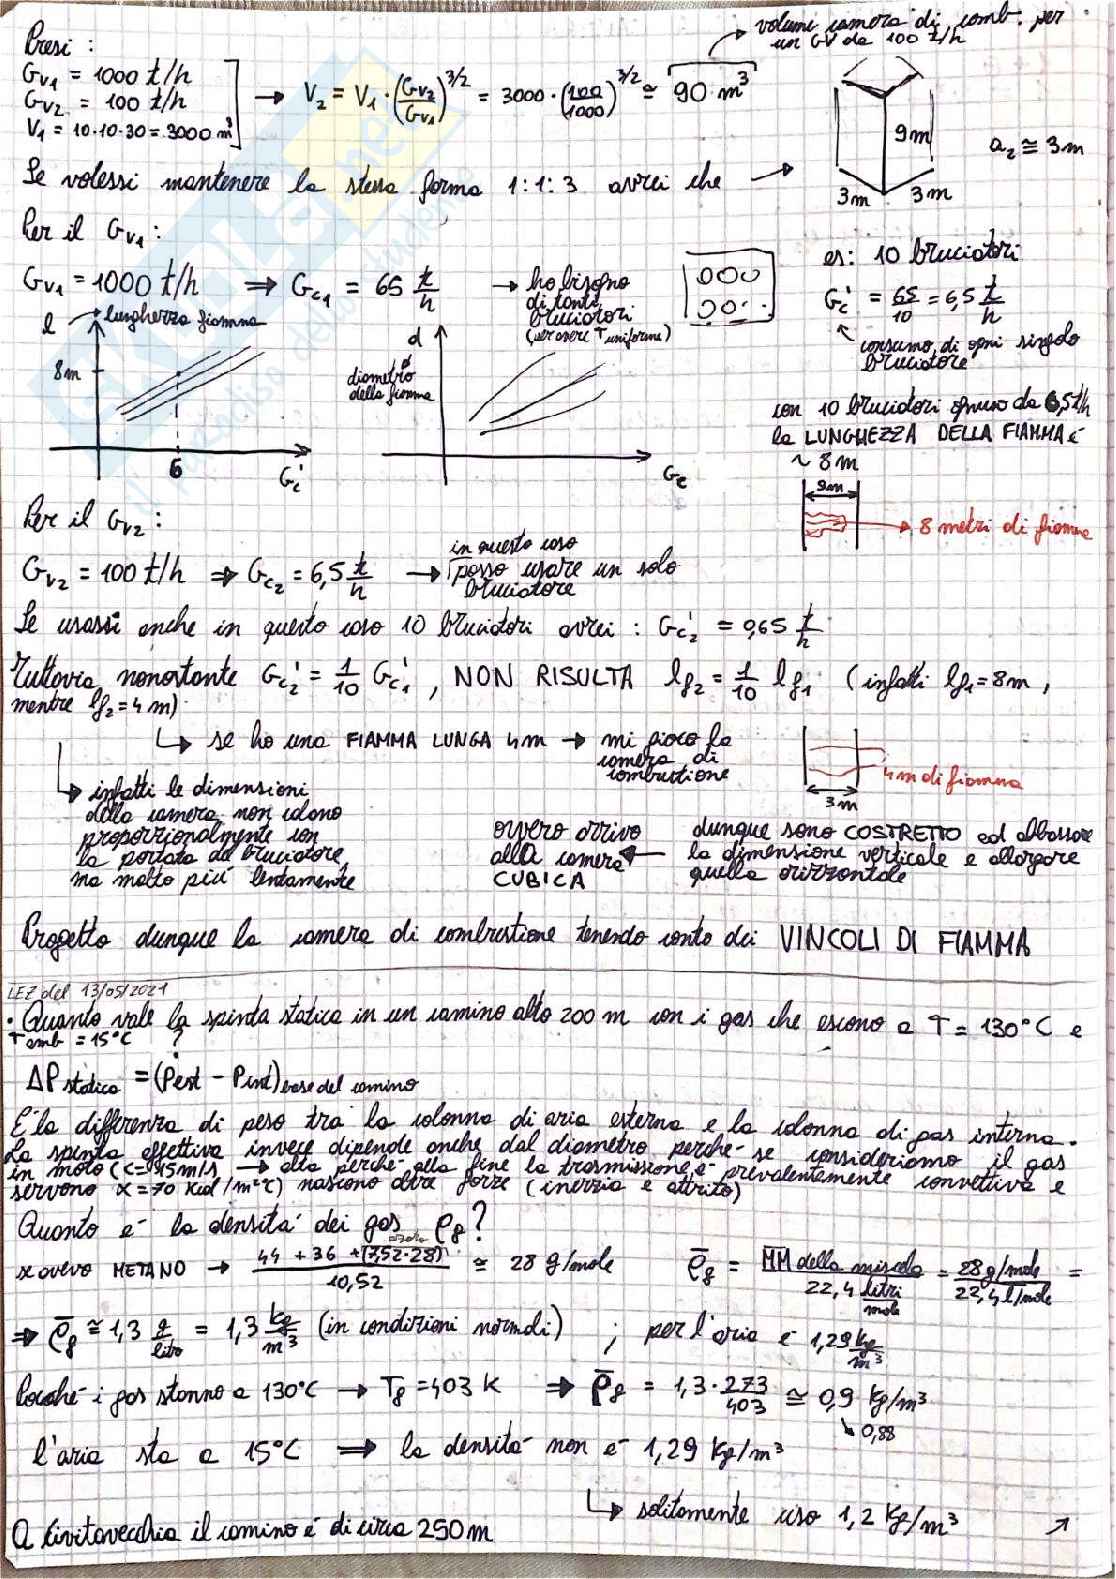 Presi :
Gv1 = 1000 t/h
Gv2 = 100 t/h
V1 = 10·10·30 = 3000 m³
→ V2 = V1 · (Gv2/Gv1)^3/2 = 3000 · (100/1000)^3/2 ≅ 90 m³
→ volumi camera di comb. per
un GV da 100 t/h
9m
3m 3m
a2 ≅ 3m
Se volessi mantenere la stessa forma 1:1:3 avrei che →
Per il Gv1 :
Gv1 = 1000 t/h ⇒ Gc1 = 65 t/h → ho bisogno
di tanti
bruciatori
(per avere T uniforme)
es: 10 bruciatori
Gc' = 65/10 = 6,5 t/h
consumo di ogni singolo
bruciatore
l → lunghezza fiamma
8m
6
Gc'
d
diametro
della fiamma
Gc
con 10 bruciatori ognuno da 6,5 t/h
la LUNGHEZZA DELLA FIAMMA è
~ 8m
9m
→ 8 metri di fiamma
Per il Gv2 :
Gv2 = 100 t/h ⇒ Gc2 = 6,5 t/h → in questo caso
posso usare un solo
bruciatore
Se usassi anche in questo caso 10 bruciatori avrei : Gc2' = 0,65 t/h
Tuttavia nonostante Gc2' = 1/10 Gc1' , NON RISULTA lf2 = 1/10 lf1 (infatti lf1 = 8m ,
mentre lf2 = 4m)
↳ se ho una FIAMMA LUNGA 4m → mi gioco la
camera di
combustione
4m di fiamma
3m
↳ infatti le dimensioni
della camera non calano
proporzionalmente con
la portata del bruciatore,
ma molto più lentamente
dunque sono COSTRETTO ad abbassare
la dimensione verticale e allargare
quella orizzontale
ovvero arrivo
alla camera
CUBICA
Progetto dunque la camera di combustione tenendo conto dei VINCOLI DI FIAMMA
LEZ del 13/05/2021
· Quanto vale la spinta statica in un camino alto 200 m con i gas che escono a T = 130°C e
Tamb = 15°C ?
ΔP statico = (Pest - Pint) base del camino
È la differenza di peso tra la colonna di aria esterna e la colonna di gas interna.
La spinta effettiva invece dipende anche dal diametro perché se consideriamo il gas
in moto → alta perché alla fine la trasmissione è prevalentemente convettiva e
servono α = 70 Kcal/m²°C) nascono altre forze (inerzia e attrito)
Quanto è la densità dei gas ρg ?
se avevo METANO → 44 + 36 + (7,52·28) / 10,52 ≅ 28 g/mole
ρ̄g = MM della miscela / 22,4 litri/mole = 28 g/mole / 22,4 l/mole =
⇒ ρ̄g ≅ 1,3 g/litro = 1,3 kg/m³ (in condizioni normali) ; per l'aria è 1,29 kg/m³
Poiché i gas stanno a 130°C → Tg = 403 K ⇒ ρ̄g = 1,3 · 273/403 ≅ 0,9 kg/m³
↘ 0,88
l'aria sta a 15°C ⇒ la densità non è 1,29 Kg/m³
↳ solitamente uso 1,2 Kg/m³
A Civitavecchia il camino è di circa 250 m